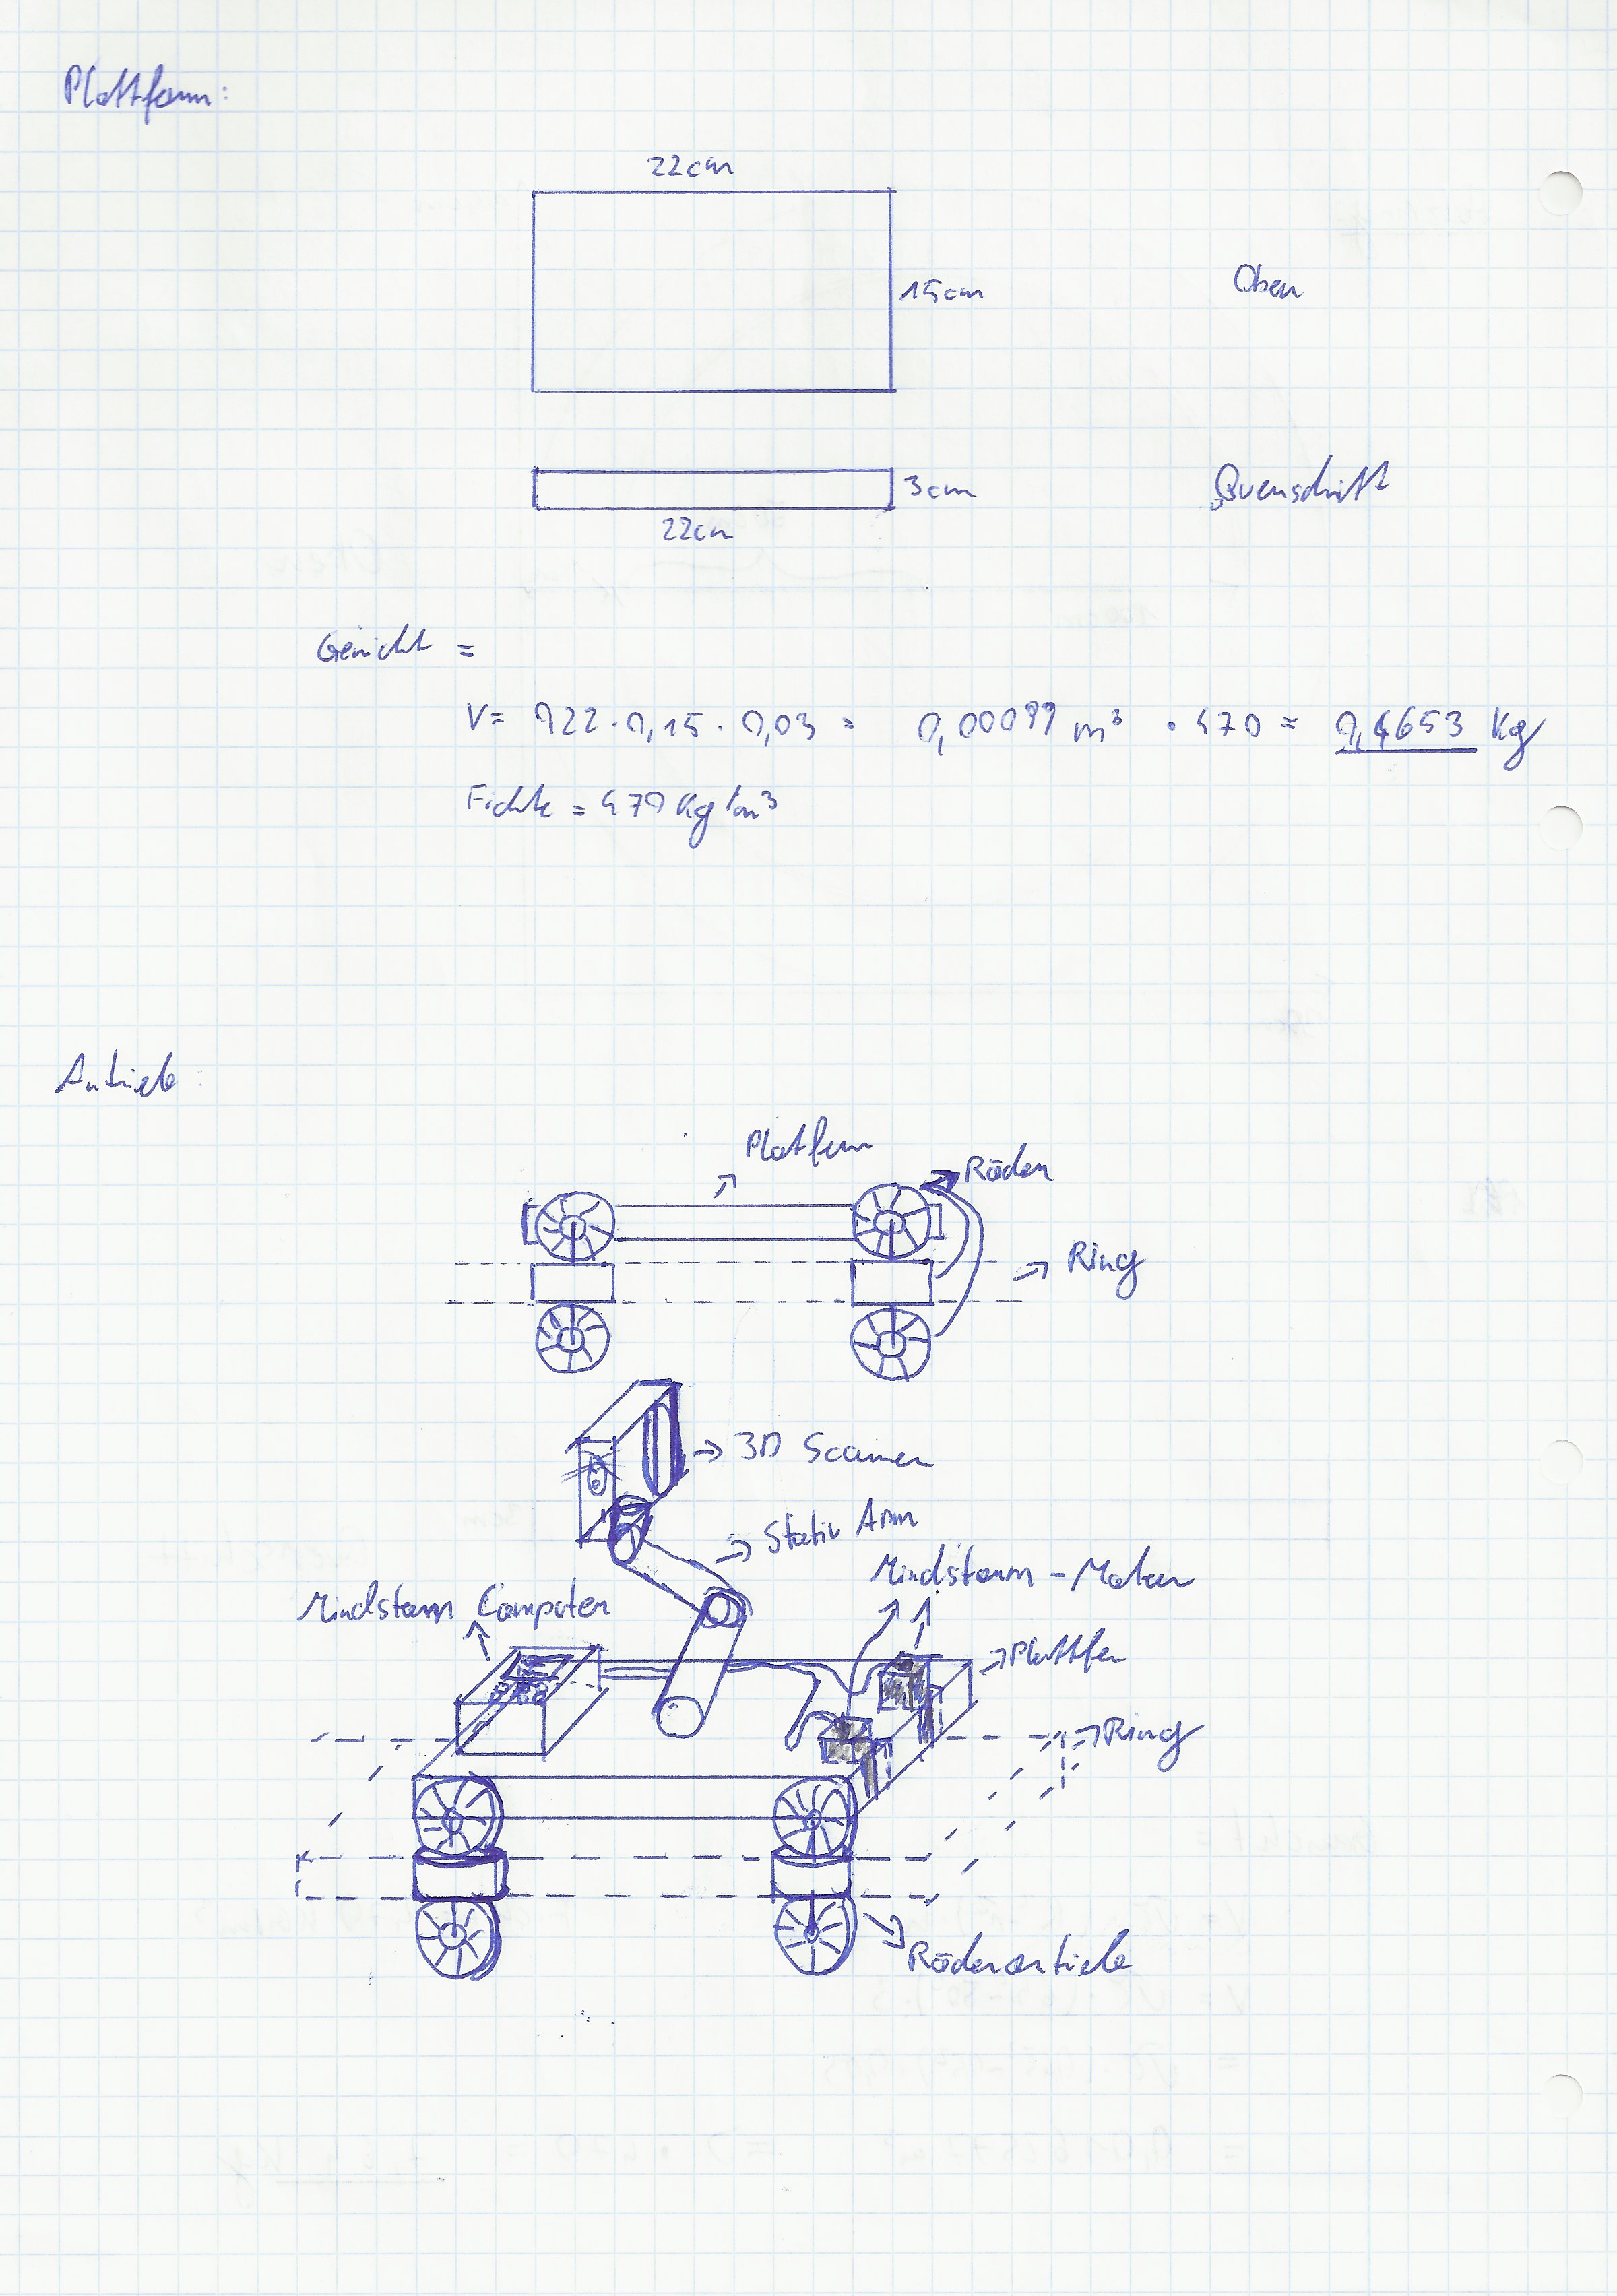 Plattform:
22cm
15cm
Oben
3cm
Querschnitt
22cm
Gewicht =
V= 0,22 · 0,15 · 0,03 = 0,00099 m³ · 470 = 0,4653 Kg
Fichte = 470 Kg/m³
Antrieb:
Platform
Räder
Ring
3D Scanner
Stativ Arm
Mindstorm - Motor
Mindstorm Computer
Ring
Räderantrieb